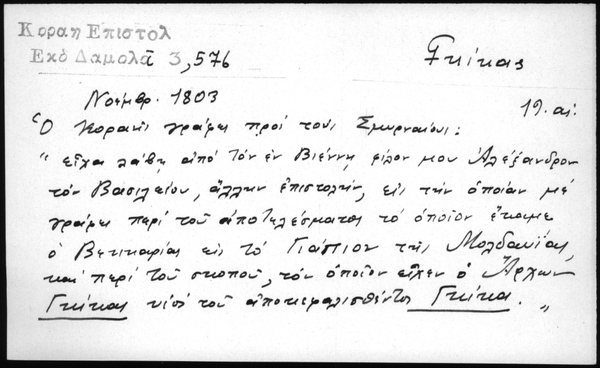 Κοραη Επιστολ
Εκδ Δαμολᾶ 3,576
Γκίκας
Νοέμβρ. 1803
19. αι.
Ὁ Κοραῆς γράφει πρός τούς Σμυρναίους:
"εἶχα λάβει ἀπό τόν ἐν Βιέννη φίλον μου Ἀλέξανδρον
τόν Βασιλείου, ἄλλην ἐπιστολήν, εἰς τήν ὁποίαν μέ
γράφει περί τοῦ ἀποτελέσματος τό ὁποῖον ἔκαμε
ὁ Βεκκαρίας εἰς τό Γιάσιον τῆς Μολδαυίας,
καί περί τοῦ σκοποῦ, τόν ὁποῖον εἶχεν ὁ Ἄρχων
Γκίκας υἱός τοῦ ἀποκεφαλισθέντος Γκίκα. "